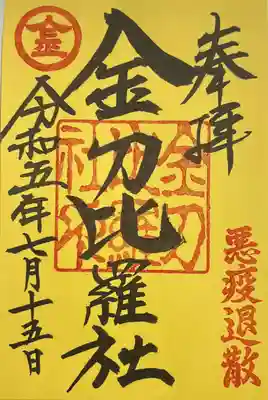 奉拝
悪疫退散
金刀比羅社
令和五年七月十五日
金